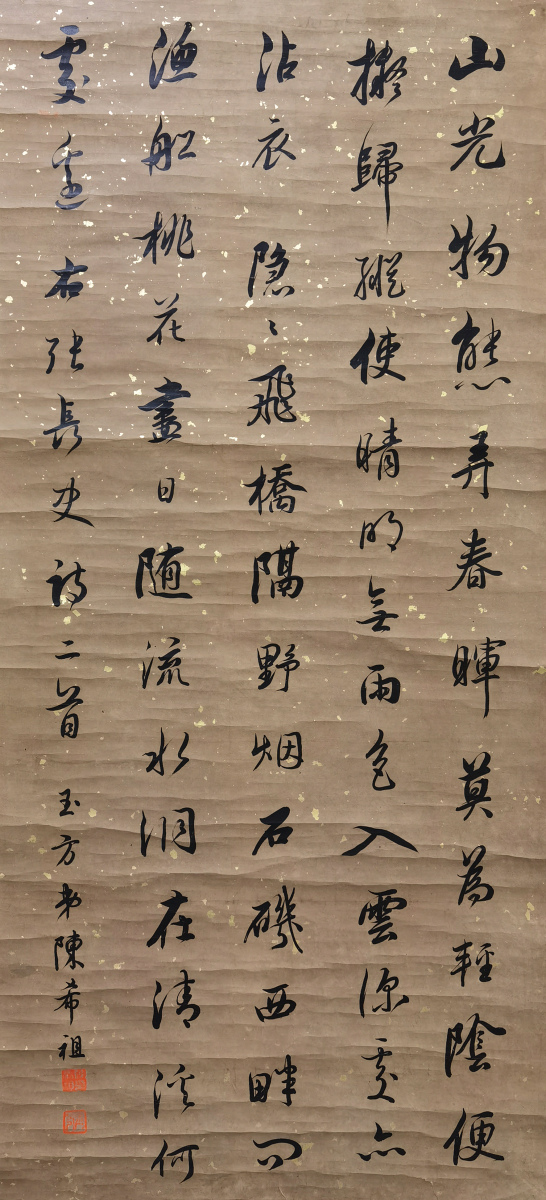 山光物態弄春暉莫為輕陰便
擬歸縱使晴明無雨色入雲深處亦
沾衣隱〻飛橋隔野烟石磯西畔問
漁船桃花盡日随流水洞在清溪何
處邊右張長史詩二首玉方弟陳希祖